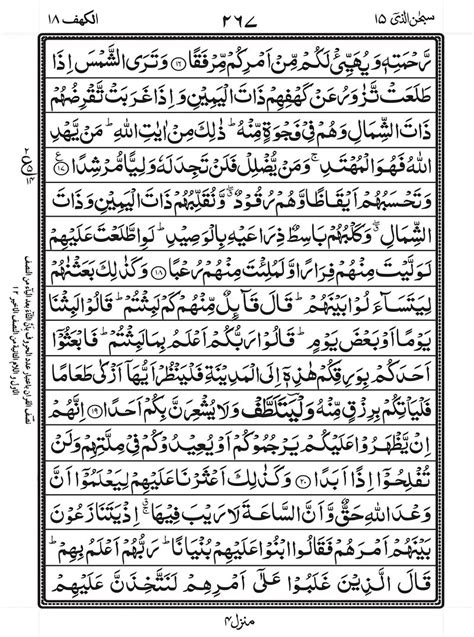 سبحٰن الذی ۱۵
۲۶۷
الکھف ۱۸
رَّحْمَتِهٖ وَيُهَيِّئْ لَكُمْ مِّنْ اَمْرِكُمْ مِّرْفَقًا ﴿۱۶﴾ وَتَرَى الشَّمْسَ اِذَا
طَلَعَتْ تَّزٰوَرُ عَنْ كَهْفِهِمْ ذَاتَ الْيَمِيْنِ وَاِذَا غَرَبَتْ تَّقْرِضُهُمْ
ذَاتَ الشِّمَالِ وَهُمْ فِىْ فَجْوَةٍ مِّنْهُ ؕ ذٰلِكَ مِنْ اٰيٰتِ اللّٰهِ ؕ مَنْ يَّهْدِ
اللّٰهُ فَهُوَ الْمُهْتَدِ ۚ وَمَنْ يُّضْلِلْ فَلَنْ تَجِدَ لَهٗ وَلِيًّا مُّرْشِدًا ﴿۱۷﴾
وَتَحْسَبُهُمْ اَيْقَاظًا وَّهُمْ رُقُوْدٌ ۖ وَّنُقَلِّبُهُمْ ذَاتَ الْيَمِيْنِ وَذَاتَ
الشِّمَالِ ۖ وَكَلْبُهُمْ بَاسِطٌ ذِرَاعَيْهِ بِالْوَصِيْدِ ؕ لَوِ اطَّلَعْتَ عَلَيْهِمْ
لَوَلَّيْتَ مِنْهُمْ فِرَارًا وَّلَمُلِئْتَ مِنْهُمْ رُعْبًا ﴿۱۸﴾ وَكَذٰلِكَ بَعَثْنٰهُمْ
لِيَتَسَآءَلُوْا بَيْنَهُمْ ؕ قَالَ قَآئِلٌ مِّنْهُمْ كَمْ لَبِثْتُمْ ؕ قَالُوْا لَبِثْنَا
يَوْمًا اَوْ بَعْضَ يَوْمٍ ؕ قَالُوْا رَبُّكُمْ اَعْلَمُ بِمَا لَبِثْتُمْ ؕ فَابْعَثُوْۤا
اَحَدَكُمْ بِوَرِقِكُمْ هٰذِهٖۤ اِلَى الْمَدِيْنَةِ فَلْيَنْظُرْ اَيُّهَاۤ اَزْكٰى طَعَامًا
فَلْيَاْتِكُمْ بِرِزْقٍ مِّنْهُ وَلْيَتَلَطَّفْ وَلَا يُشْعِرَنَّ بِكُمْ اَحَدًا ﴿۱۹﴾ اِنَّهُمْ
اِنْ يَّظْهَرُوْا عَلَيْكُمْ يَرْجُمُوْكُمْ اَوْ يُعِيْدُوْكُمْ فِىْ مِلَّتِهِمْ وَلَنْ
تُفْلِحُوْۤا اِذًا اَبَدًا ﴿۲۰﴾ وَكَذٰلِكَ اَعْثَرْنَا عَلَيْهِمْ لِيَعْلَمُوْۤا اَنَّ
وَعْدَ اللّٰهِ حَقٌّ وَّاَنَّ السَّاعَةَ لَا رَيْبَ فِيْهَا ۚ اِذْ يَتَنَازَعُوْنَ
بَيْنَهُمْ اَمْرَهُمْ فَقَالُوا ابْنُوْا عَلَيْهِمْ بُنْيَانًا ؕ رَبُّهُمْ اَعْلَمُ بِهِمْ ؕ
قَالَ الَّذِيْنَ غَلَبُوْا عَلٰٓى اَمْرِهِمْ لَنَتَّخِذَنَّ عَلَيْهِمْ
منزل ۴